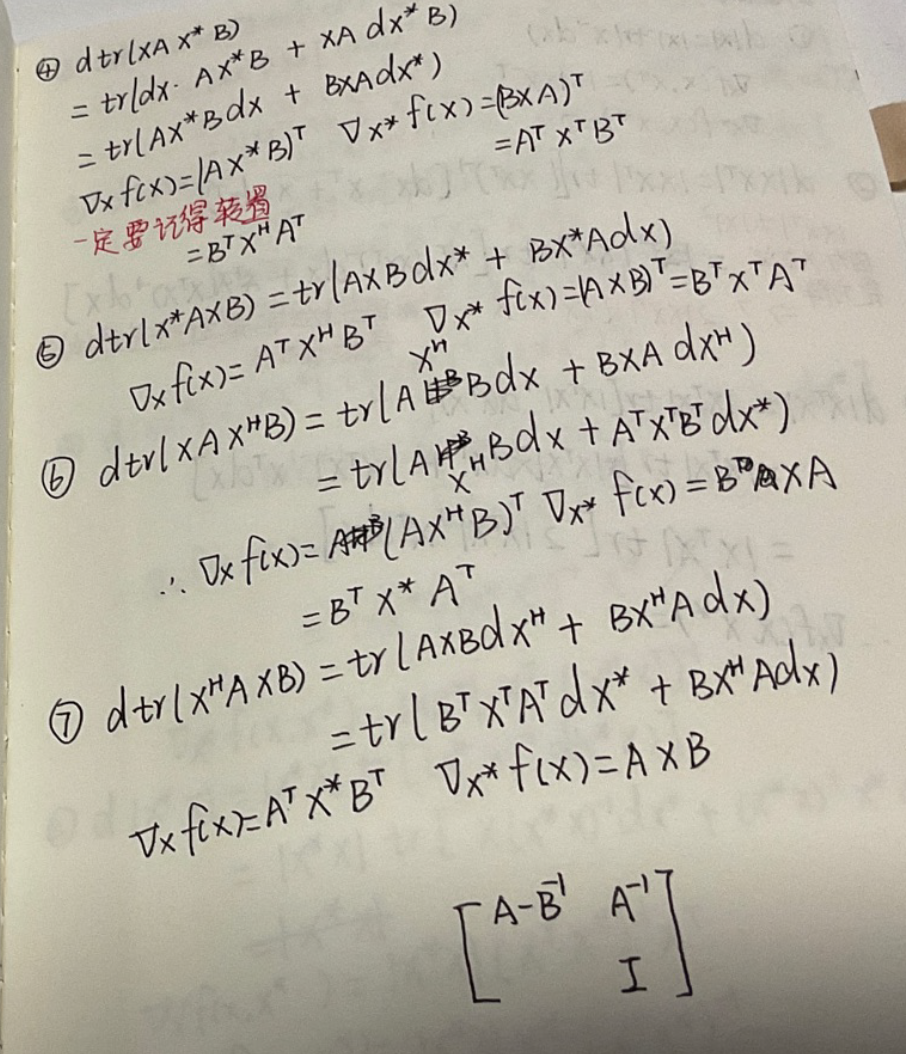 ④ dtr(XAX*B)
= tr(dx· AX*B + XAdx*B)
= tr(AX*Bdx + BXAdx*)
∇x f(x)=(AX*B)ᵀ ∇x* f(x)=(BXA)ᵀ
一定要记得转置
=BᵀXᴴAᵀ =AᵀXᵀBᵀ
⑤ dtr(X*AXB) = tr(AXBdx* + BX*Adx)
∇x f(x)= AᵀXᴴBᵀ ∇x* f(x)=(AXB)ᵀ=BᵀXᵀAᵀ
⑥ dtr(XAXᴴB) = tr(AXᴴBdx + BXAdxᴴ)
= tr(AXᴴBdx + AᵀXᵀBᵀdx*)
∴ ∇x f(x)= (AXᴴB)ᵀ ∇x* f(x) = BXA
= BᵀX*Aᵀ
⑦ dtr(XᴴAXB) = tr(AXBdxᴴ + BXᴴAdx)
= tr(BᵀXᵀAᵀdx* + BXᴴAdx)
∇x f(x)= AᵀX*Bᵀ ∇x* f(x) = AXB
[A-B⁻¹ A⁻¹
I]